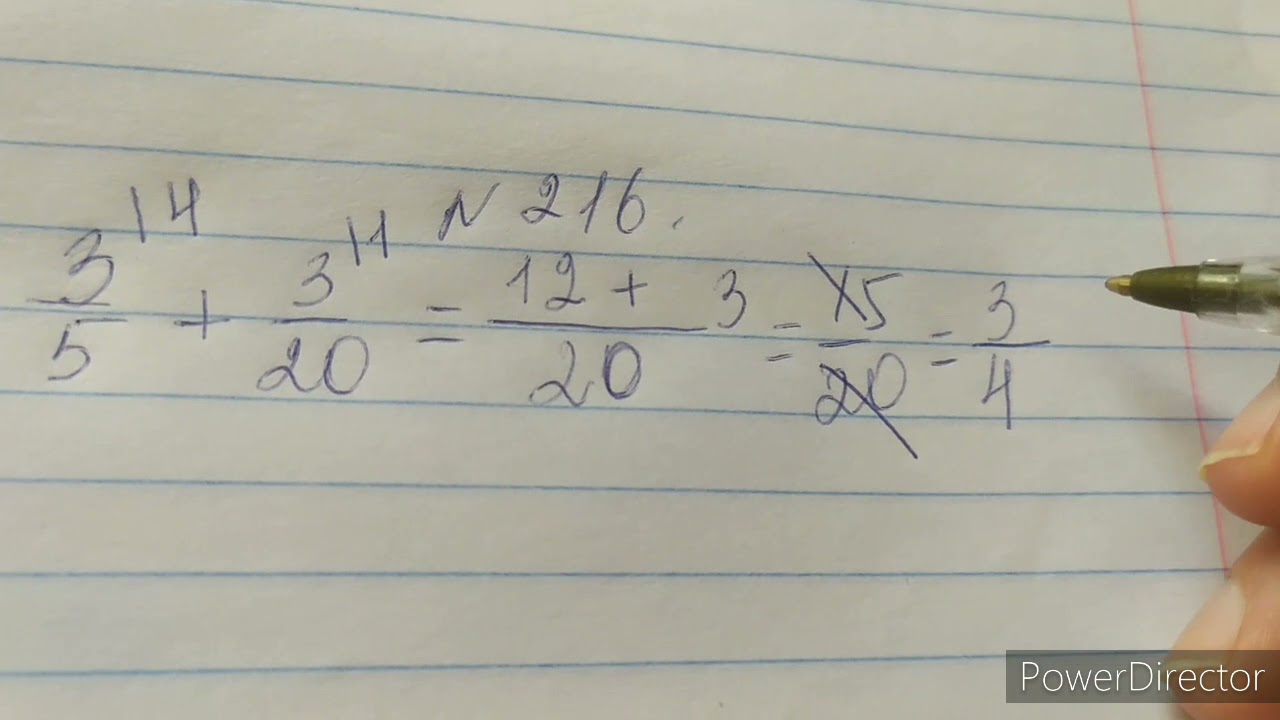 N 216.
3/5 |4 + 3/20 |1 = 12 + 3/20 = 15/20 = 3/4
PowerDirector